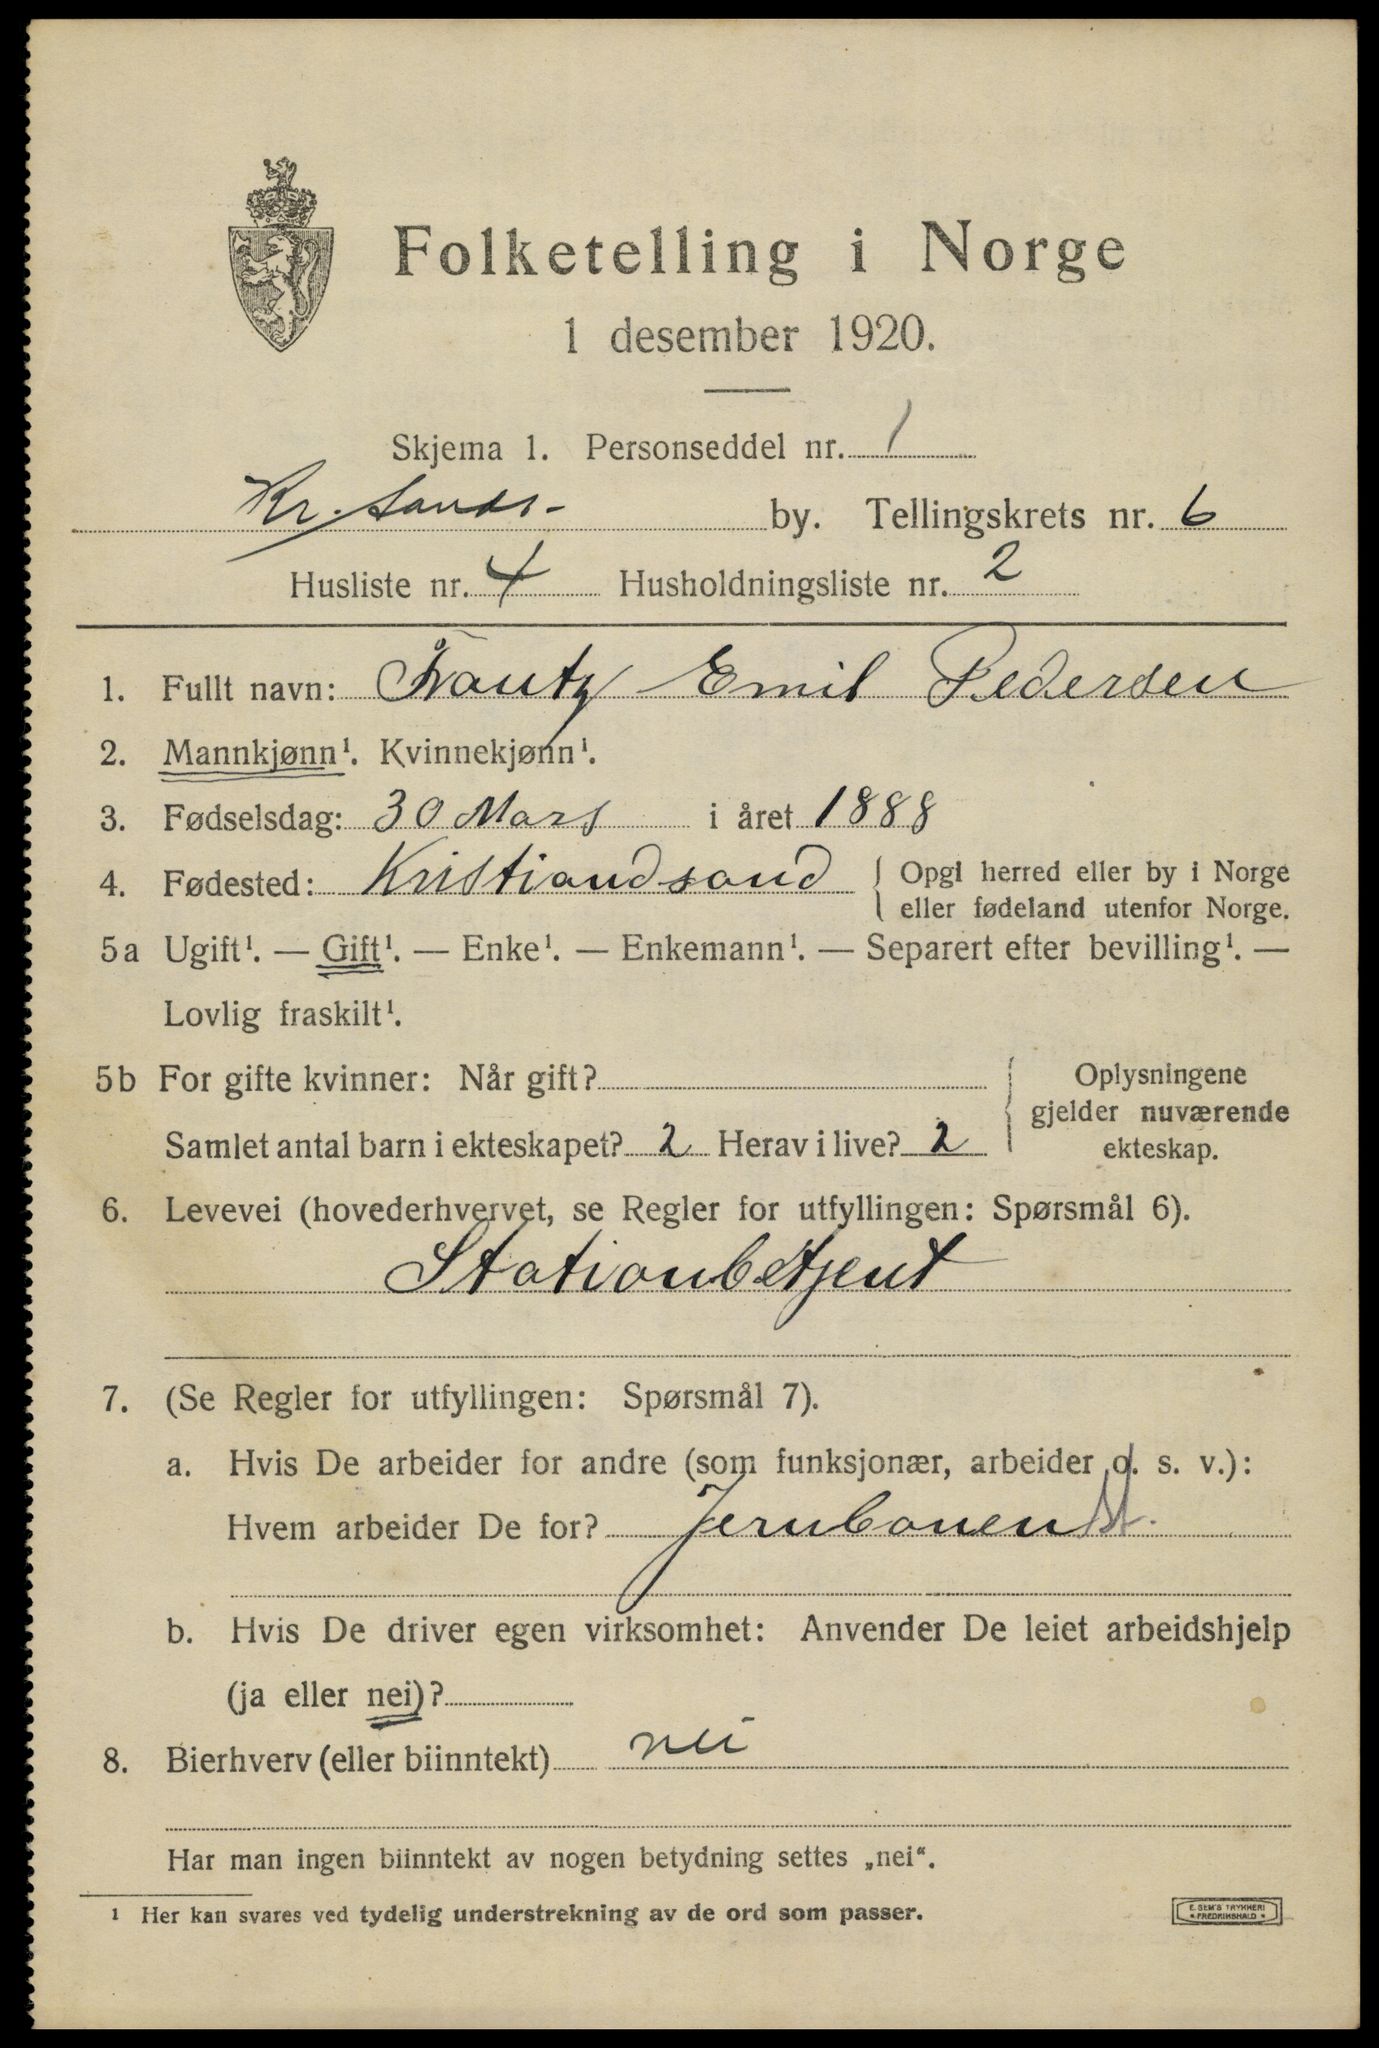 Folketelling i Norge
1 desember 1920.
Skjema 1. Personseddel nr. 1
Kr. sands- by. Tellingskrets nr. 6
Husliste nr. 4 Husholdningsliste nr. 2
1. Fullt navn: Frantz Emil Pedersen
2. Mannkjønn¹. Kvinnekjønn¹.
3. Fødselsdag: 30 Mars i året 1888
4. Fødested: Kristiandsand { Opgi herred eller by i Norge
eller fødeland utenfor Norge.
5a Ugift¹. — Gift¹. — Enke¹. — Enkemann¹. — Separert efter bevilling¹. —
Lovlig fraskilt¹.
5b For gifte kvinner: Når gift? { Oplysningene
gjelder nuværende
Samlet antal barn i ekteskapet? 2 Herav i live? 2 ekteskap.
6. Levevei (hovederhvervet, se Regler for utfyllingen: Spørsmål 6).
Stationbetjent
7. (Se Regler for utfyllingen: Spørsmål 7).
a. Hvis De arbeider for andre (som funksjonær, arbeider o. s. v.):
Hvem arbeider De for? Jernbanen St.
b. Hvis De driver egen virksomhet: Anvender De leiet arbeidshjelp
(ja eller nei)?
8. Bierhverv (eller biinntekt) nei
Har man ingen biinntekt av nogen betydning settes „nei“.
¹ Her kan svares ved tydelig understrekning av de ord som passer.
E. SEM'S TRYKKERI
* FREDRIKSHALD *